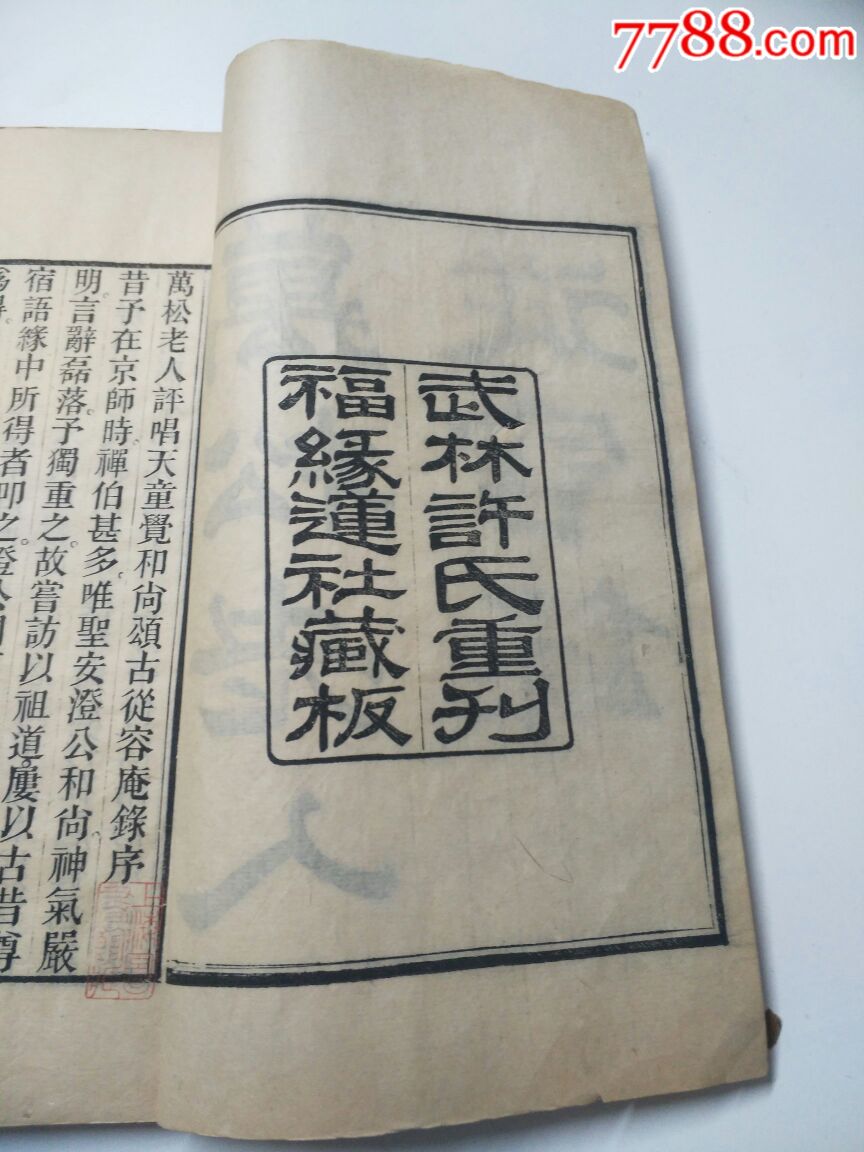 7788.com
武林許氏重刊
福緣蓮社藏板
萬松老人評唱天童覺和尚頌古從容庵錄序
昔予在京師時。禪伯甚多。唯聖安澄公和尚。神氣嚴
明。言辭磊落。予獨重之。故嘗訪以祖道。屢以古昔尊
宿語緣中所得者叩之。澄公間
為得。